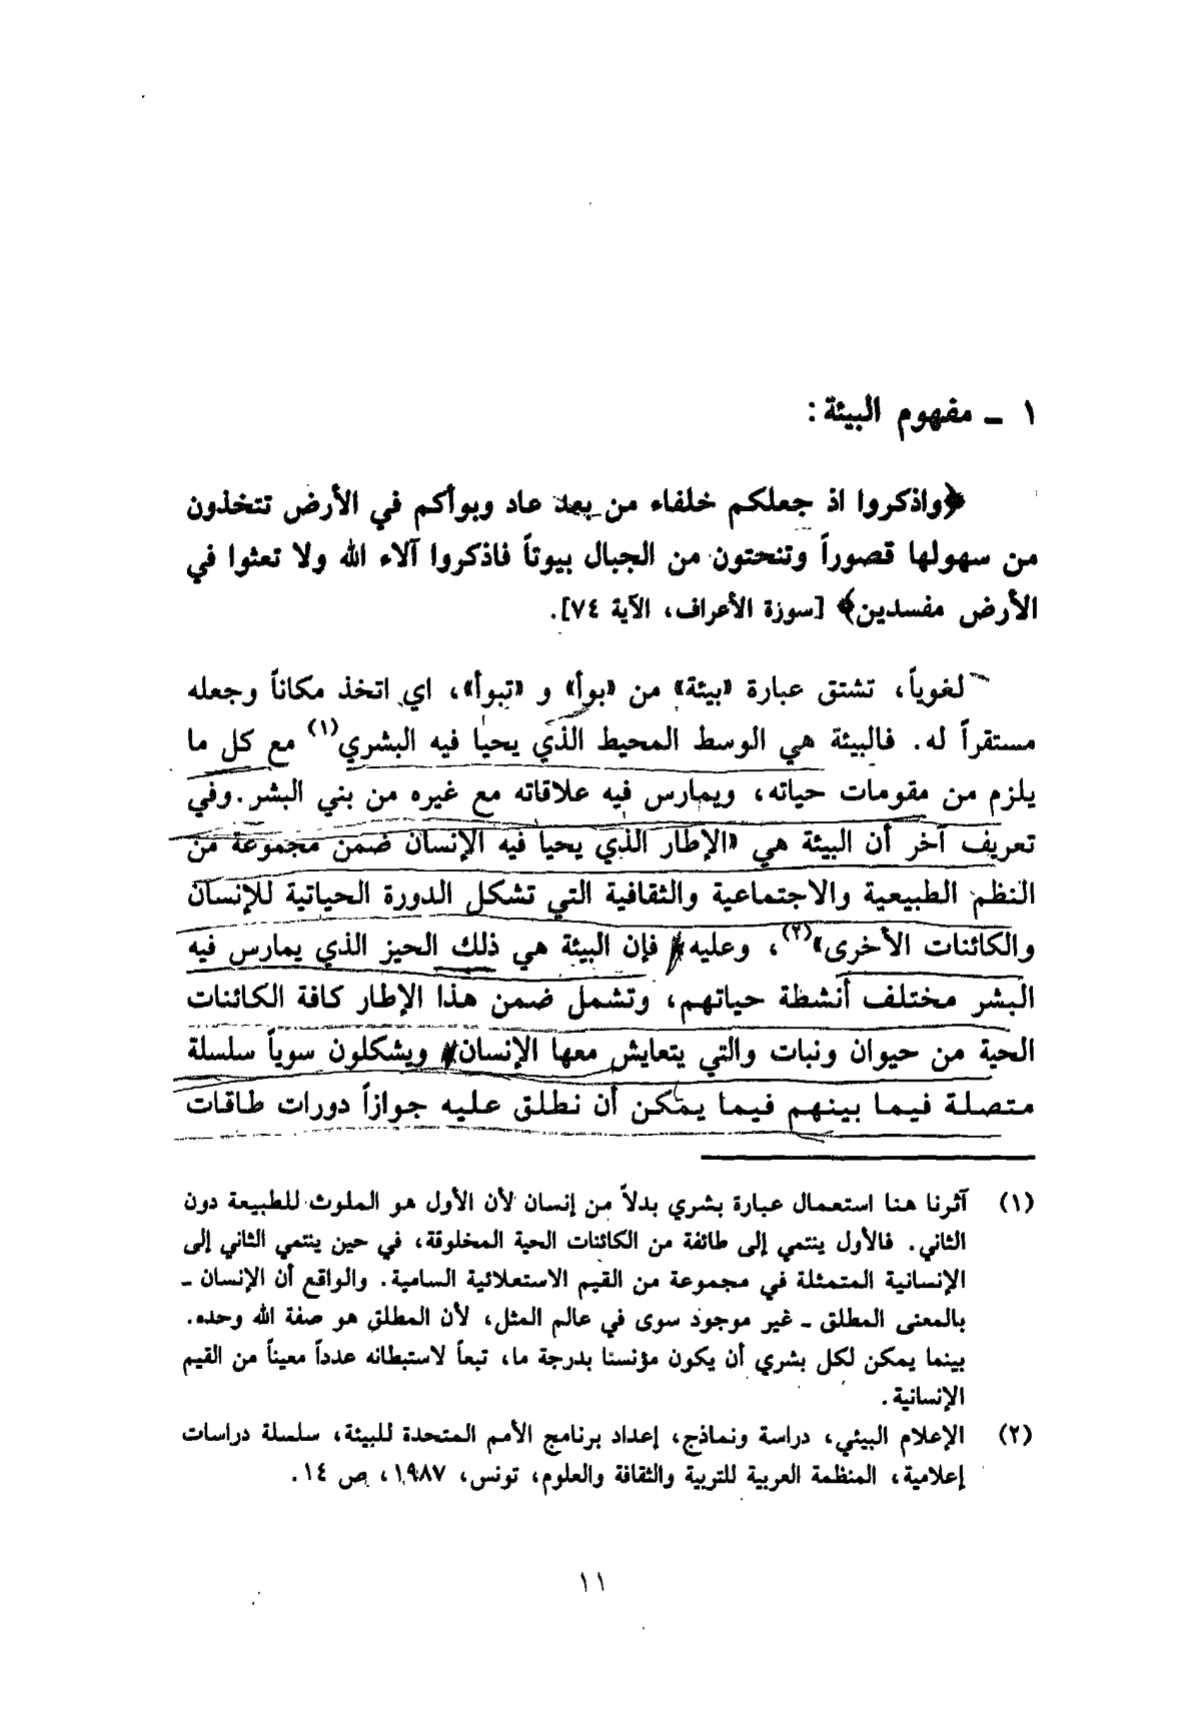 ١ ـ مفهوم البيئة :
﴿واذكروا اذ جعلكم خلفاء من بعد عاد وبوأكم في الأرض تتخذون
من سهولها قصوراً وتنحتون من الجبال بيوتاً فاذكروا آلاء الله ولا تعثوا في
الأرض مفسدين﴾ [سورة الأعراف، الآية ٧٤].
لغوياً، تشتق عبارة «بيئة» من «بوأ» و «تبوأ»، اي اتخذ مكاناً وجعله
مستقراً له. فالبيئة هي الوسط المحيط الذي يحيا فيه البشري(١) مع كل ما
يلزم من مقومات حياته، ويمارس فيه علاقاته مع غيره من بني البشر. وفي
تعريف آخر أن البيئة هي «الإطار الذي يحيا فيه الإنسان ضمن مجموعة من
النظم الطبيعية والاجتماعية والثقافية التي تشكل الدورة الحياتية للإنسان
والكائنات الأخرى»(٢)، وعليه فإن البيئة هي ذلك الحيز الذي يمارس فيه
البشر مختلف أنشطة حياتهم، وتشمل ضمن هذا الإطار كافة الكائنات
الحية من حيوان ونبات والتي يتعايش معها الإنسان ويشكلون سوياً سلسلة
متصلة فيما بينهم فيما يمكن أن نطلق عليه جوازاً دورات طاقات
(١) آثرنا هنا استعمال عبارة بشري بدلاً من إنسان لأن الأول هو الملوث للطبيعة دون
الثاني. فالأول ينتمي إلى طائفة من الكائنات الحية المخلوقة، في حين ينتمي الثاني إلى
الإنسانية المتمثلة في مجموعة من القيم الاستعلائية السامية. والواقع أن الإنسان ـ
بالمعنى المطلق ـ غير موجود سوى في عالم المثل، لأن المطلق هو صفة الله وحده.
بينما يمكن لكل بشري أن يكون مؤنسنا بدرجة ما، تبعاً لاستبطانه عدداً معيناً من القيم
الإنسانية.
(٢) الإعلام البيئي، دراسة ونماذج، إعداد برنامج الأمم المتحدة للبيئة، سلسلة دراسات
إعلامية، المنظمة العربية للتربية والثقافة والعلوم، تونس، ١٩٨٧، ص ١٤.
١١